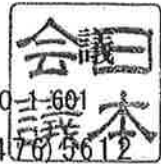 日本
会議
議
0-1-601
(76)5612